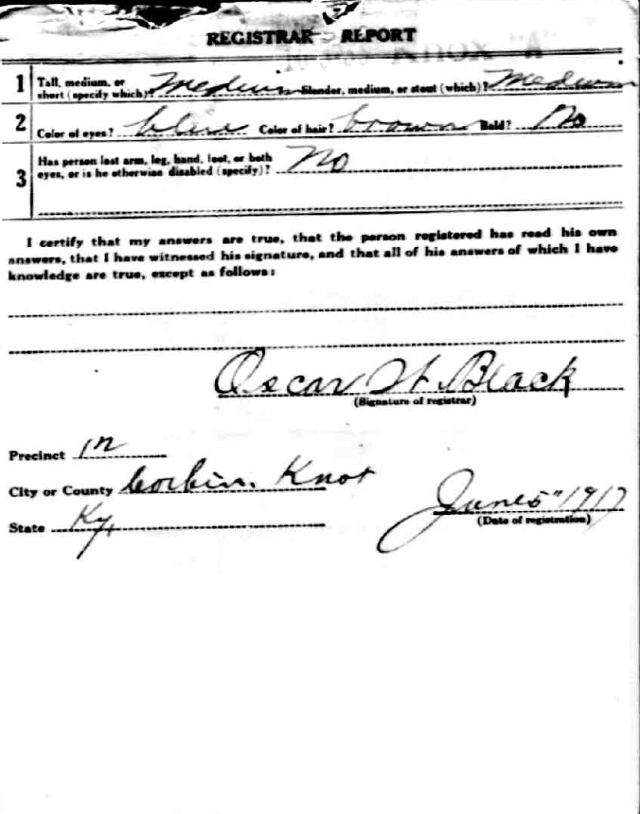 REGISTRAR REPORT
1 Tall, medium, or short (specify which)? Medium Slender, medium, or stout (which)? Medium
2 Color of eyes? blue Color of hair? brown Bald? No
3 Has person lost arm, leg, hand, foot, or both eyes, or is he otherwise disabled (specify)? No
I certify that my answers are true, that the person registered has read his own
answers, that I have witnessed his signature, and that all of his answers of which I have
knowledge are true, except as follows:
Oscar W. Black
(Signature of registrar)
Precinct
City or County Corbin. Knox
State Ky.
June 5" 1917
(Date of registration)